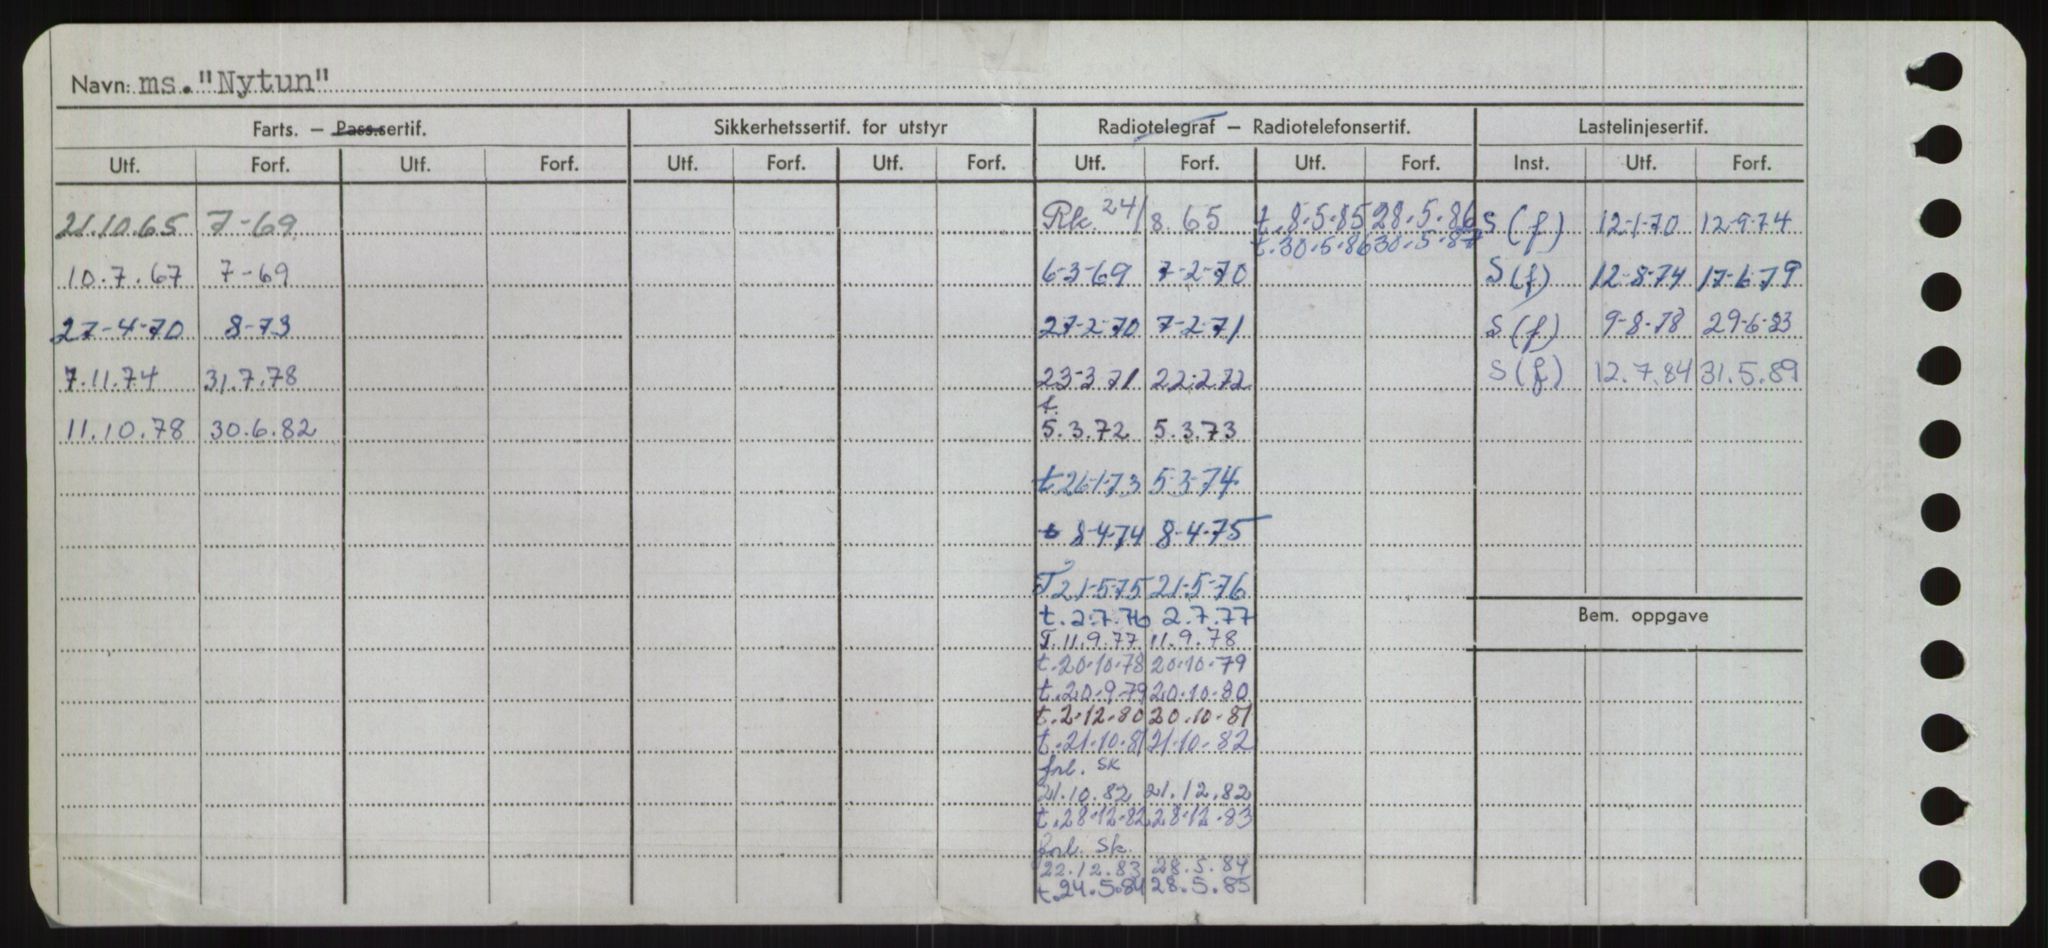 Navn: ms. "Nytun"
Farts. – Pass.sertif. Sikkerhetssertif. for utstyr Radiotelegraf – Radiotelefonsertif. Lastelinjesertif.
Utf. Forf. Utf. Forf. Utf. Forf. Utf. Forf. Utf. Forf. Utf. Forf. Inst. Utf. Forf.
21.10.65 7-69 Rk. 24/8.65 t.8.5.85 28.5.86 S(f) 12-1-70 12-9-74
t.30.5.86 30.5.87
10.7.67 7-69 6-3-69 7-2-70 S(f) 12-8-74 17-6-79
27-4-70 8-73 27-2-70 7-2-71 S(f) 9-8-78 29-6-83
7.11.74 31.7.78 23-3-71 22.2.72 S(f) 12.7.84 31.5.89
t.
11.10.78 30.6.82 5.3.72 5.3.73
t.26-1-73 5-3-74
t 8-4-74 8-4-75
T 21-5-75 21-5-76
t.2.7.76 2.7.77
Bem. oppgave
T.11.9.77 11.9.78
t.20.10.78 20.10.79
t.20.9.79 20.10.80
t.2.12.80 20.10.81
t.21.10.81 21.10.82
forl. SK
21.10.82 21.12.82
t.28.12.82 28.12.83
forl. Sk.
22.12.83 28.5.84
t.24.5.84 28.5.85